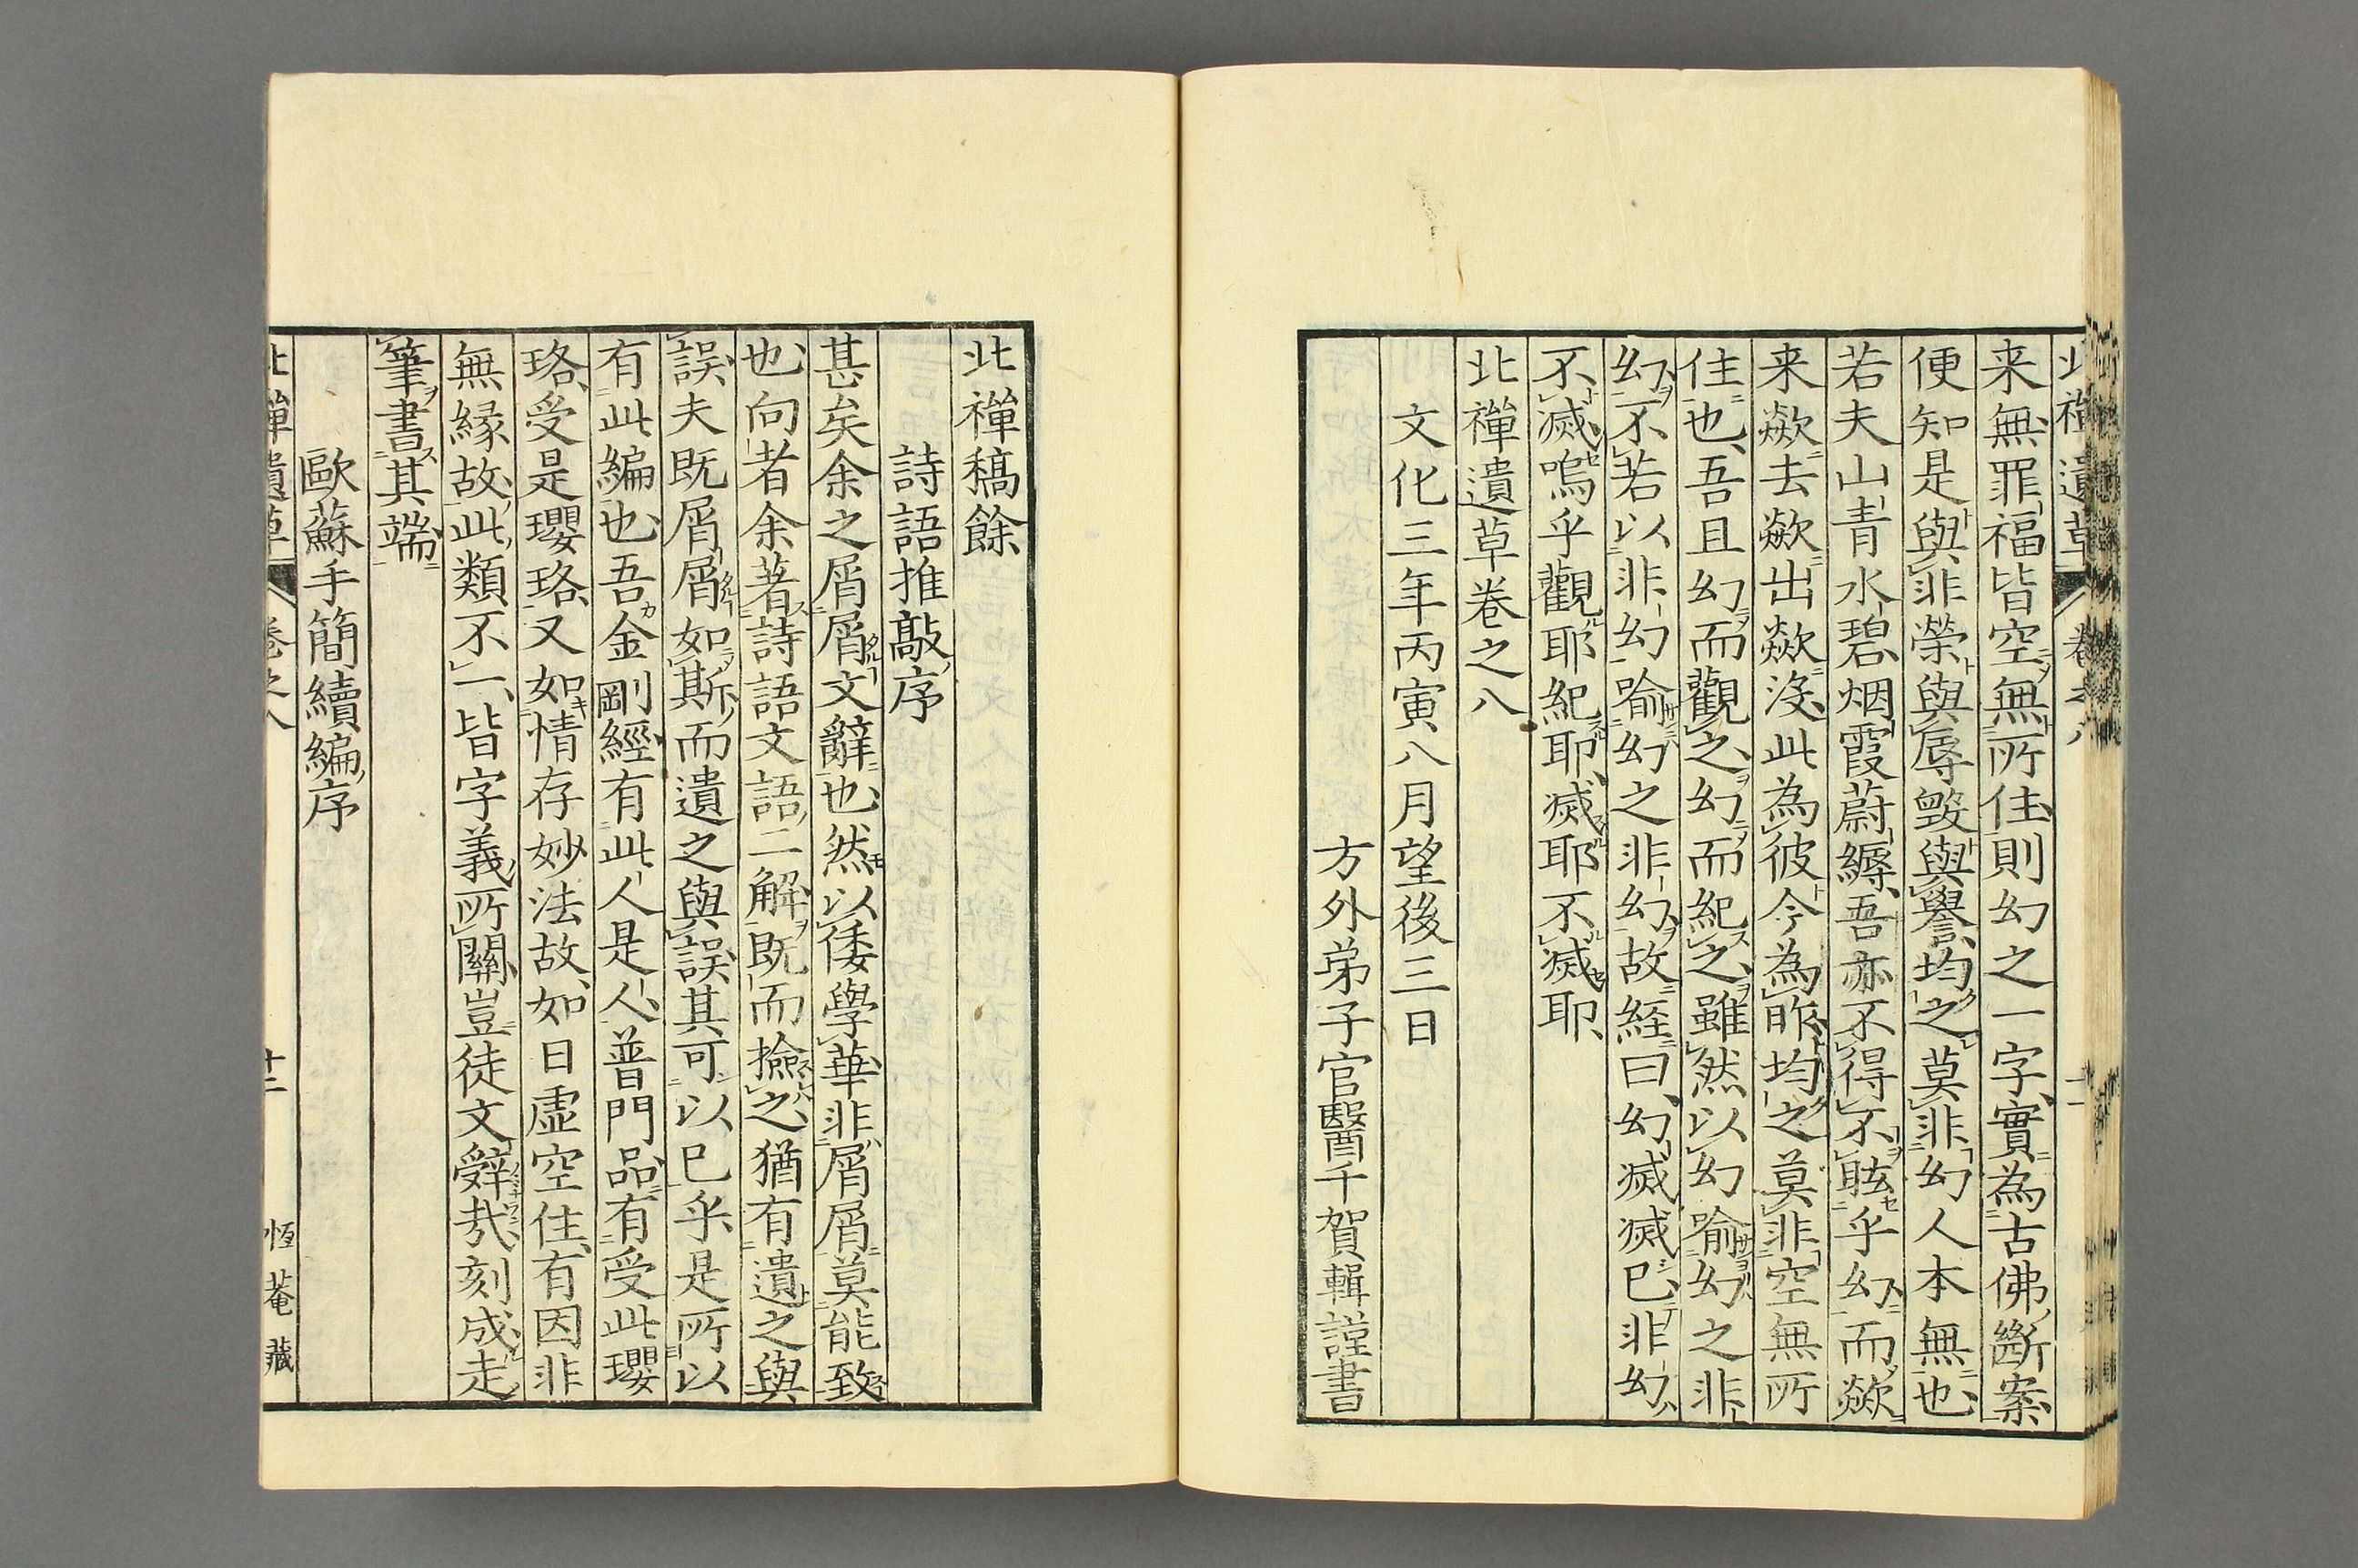 北禅遺草 卷之八
来無罪福皆空無所住則幻之一字實為古佛断案
便知是與非榮與辱毀與譽均之莫非幻人本無也
若夫山青水碧烟霞蔚縟吾亦不得不眩乎幻而歘
来歘去歘出歘没此為彼今為昨均之莫非空無所
住也吾且幻而觀之幻而紀之雖然以幻喻幻之非
幻不若以非幻喻幻之非幻故経曰幻滅滅已非幻
不滅嗚乎觀耶紀耶滅耶不滅耶
北禅遺草卷之八
文化三年丙寅八月望後三日
方外弟子官醫千賀輯謹書
北禅稿餘
詩語推敲序
甚矣余之屑屑文辭也然以倭學華非屑屑莫能致
也向者余著詩語文語二解既而撿之猶有遺之與
誤夫既屑屑如斯而遺之與誤其可以已乎是所以
有此編也吾金剛經有此人是人普門品有受此瓔
珞受是瓔珞又如情存妙法故如日虚空住有因非
無縁故此類不一皆字義所關豈徒文辭哉刻成走
筆書其端
歐蘇手簡續編序
北禅遺草 卷之八 十二 恆菴藏